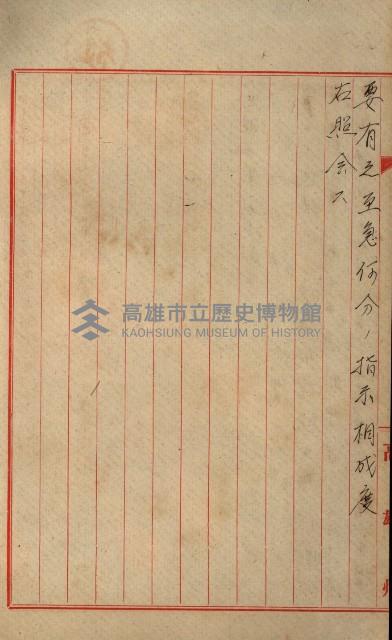 要有之至急何分ノ指示相成度
右照会ス
高雄州
高雄市立歷史博物館
KAOHSIUNG MUSEUM OF HISTORY